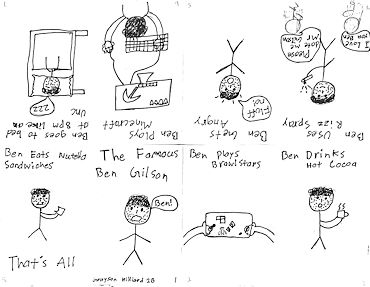 I love
you Ben
Please
date me
Mr
Gilson
Ben Uses
Rizz Spray
Ben Gets
Angry
Ben Plays
Minecraft
zzz
Ben goes to bed
at 8pm like an
Unc
Ben Eats Nutella
Sandwiches
The Famous
Ben Gilson
Ben!
Ben Plays
Brawlstars
Ben Drinks
Hot Cocoa
That's All